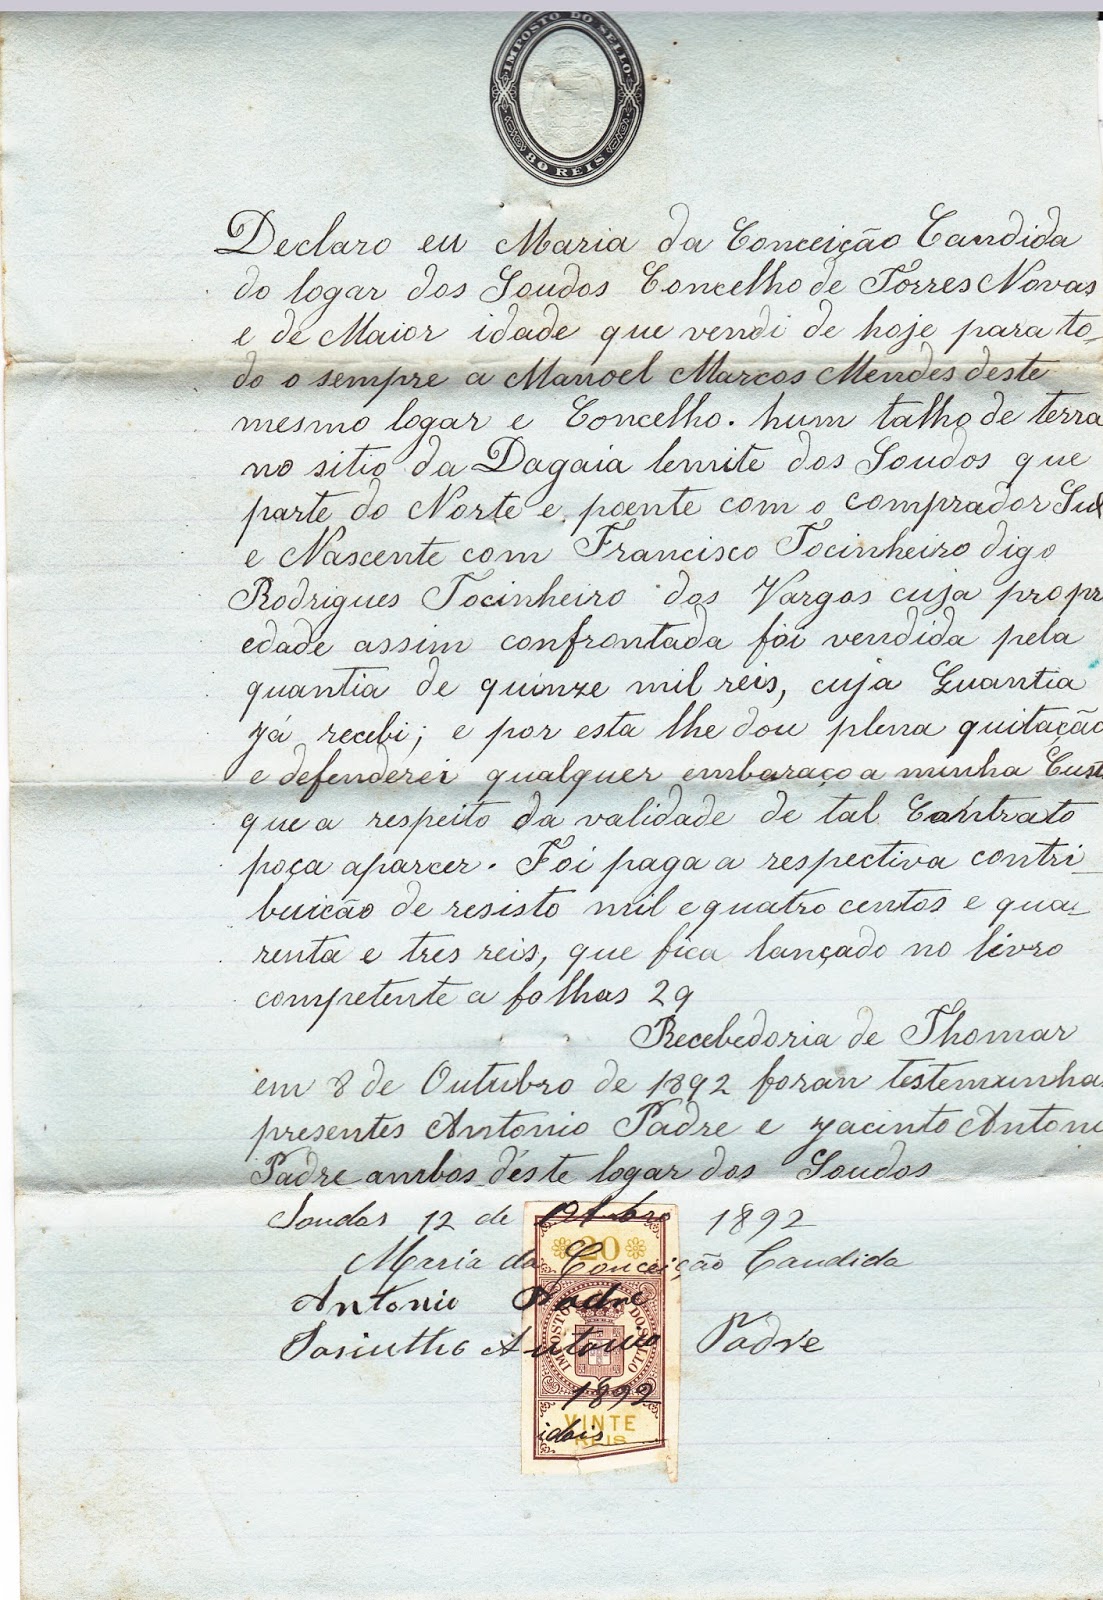 IMPOSTO DO SELLO
80 REIS
Declaro eu Maria da Conceição Candida
do logar dos Soudos Concelho de Torres Novas
e de Maior idade que vendi de hoje para to-
do o sempre a Manoel Marcos Mendes deste
mesmo logar e Concelho. hum talho de terra
no sitio da Dagaia lemite dos Soudos que
parte do Norte e poente com o comprador Sul
e Nascente com Francisco Tocinheiro digo
Rodrigues Tocinheiro dos Vargos cuja propr
edade assim confrontada foi vendida pela
quantia de quinze mil reis, cuja Guantia
já recebi; e por esta lhe dou plena quitação
e defenderei qualquer embaraço a minha Cust
que a respeito da validade de tal Contrato
poça aparcer. Foi paga a respectiva contri-
buicão de resisto mil e quatro centos e qua-
renta e tres reis, que fica lançado no livro
competente a folhas 29
Recebedoria de Thomar
em 8 de Outubro de 1892 foran testemunhas
presentes Antonio Padre e Jacinto Antoni
Padre ambos déste logar dos Soudos
Soudos 12 de Outubro 1892
Maria da Conceição Candida
Antonio Padre
Jasintho Antonio Padre
1892
20
IMPOSTO DO SELLO
VINTE
REIS